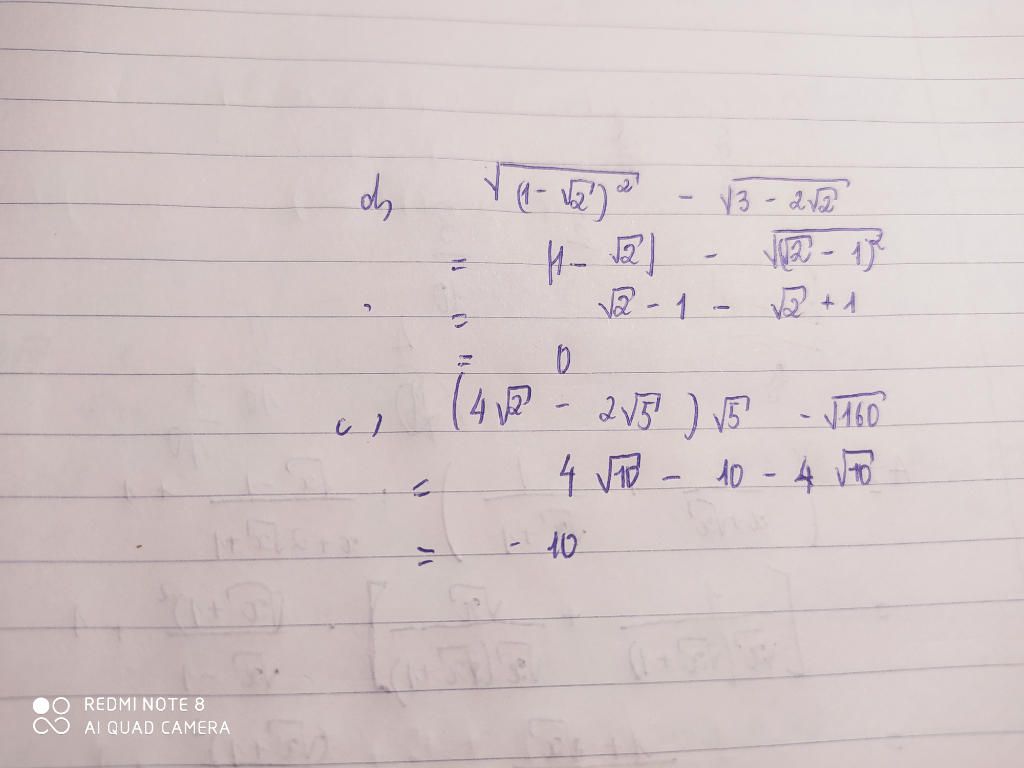 d, √(1 - √2)² - √3 - 2√2
= |1 - √2| - √(√2 - 1)²
= √2 - 1 - √2 + 1
= 0
c, (4√2 - 2√5)√5 - √160
= 4√10 - 10 - 4√10
= - 10
REDMI NOTE 8
AI QUAD CAMERA